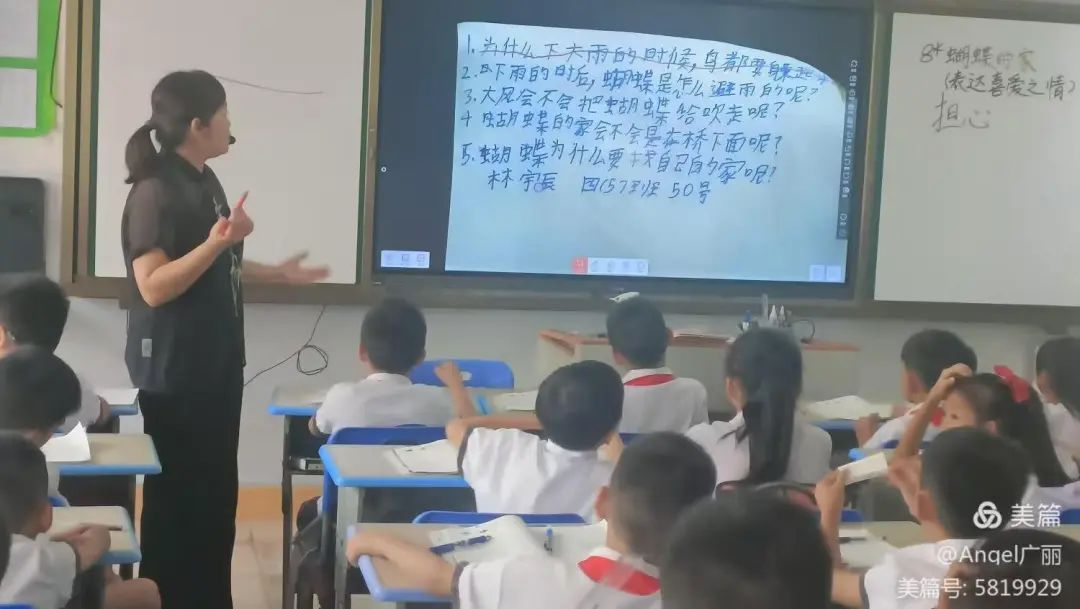 1. 为什么下大雨的时候,鸟都要躲起来
2. 下雨的时后,蝴蝶是怎么避雨的呢?
3. 大风会不会把蝴蝶给吹走呢?
4 蝴蝶的家会不会是在桥下面呢?
5. 蝴蝶为什么要找自己的家呢?
林宇辰 四(5)班 50号
8* 蝴蝶的家
(表达喜爱之情)
担心
美篇
@Angel广丽
美篇号: 5819929